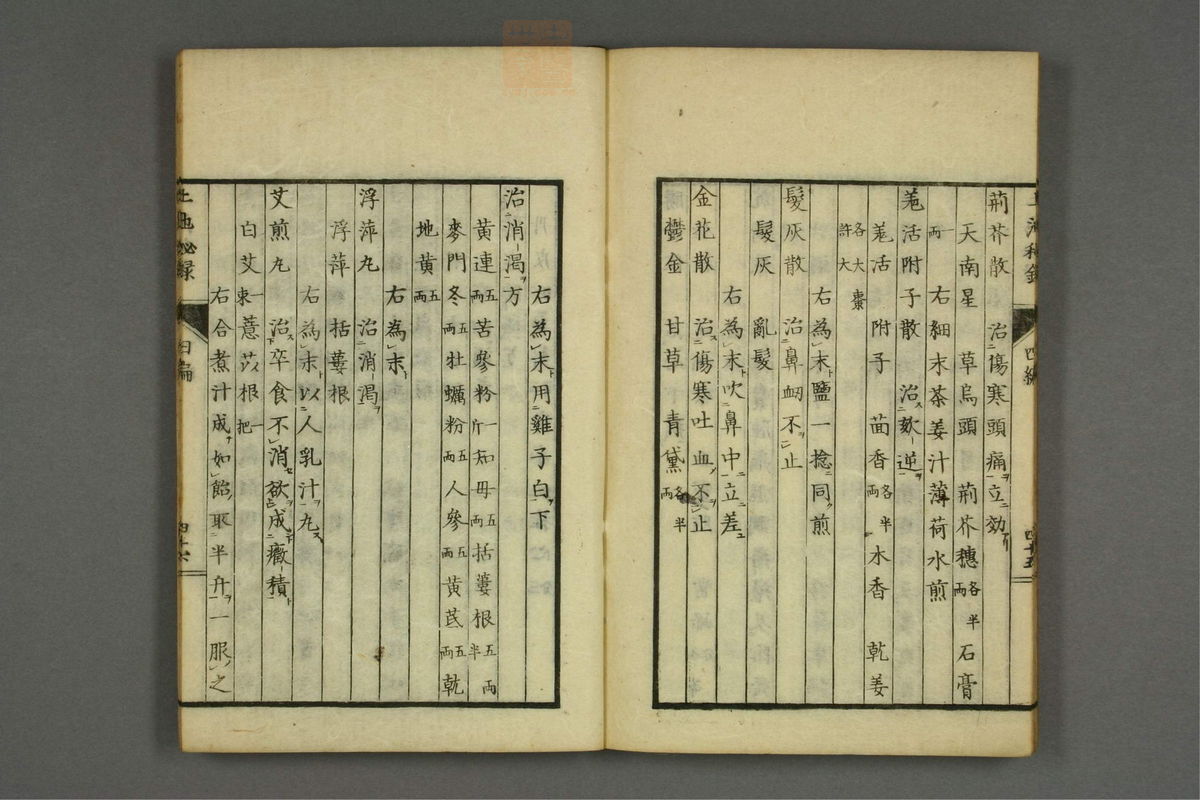 荊芥散 治傷寒頭痛立効
天南星 草烏頭 荊芥穗各半両 石膏
一両 右細末茶姜汁薄荷水煎
羗活附子散 治欬逆
羗活 附子 茴香各半両 木香 乾姜
各大棗許大
右為末鹽一捻同煎
髮灰散 治鼻衂不止
髮灰 亂髮
右為末吹鼻中立差
金花散 治傷寒吐血不止
鬱金 甘草 青黛各半両
右為末用雞子白下
治消渴方
黄連五両 苦參粉一斤 知母五両 括蔞根五両半
麥門冬五両 牡蠣粉五両 人參五両 黄茋五両 乾
地黄五両
右為末
浮萍丸 治消渴
浮萍 括蔞根
右為末以人乳汁丸
艾煎丸 治卒食不消欲成癥積
白艾一束 薏苡根一把
右合煮汁成如飴取半升一服之
四編
四十六
四編
四十五